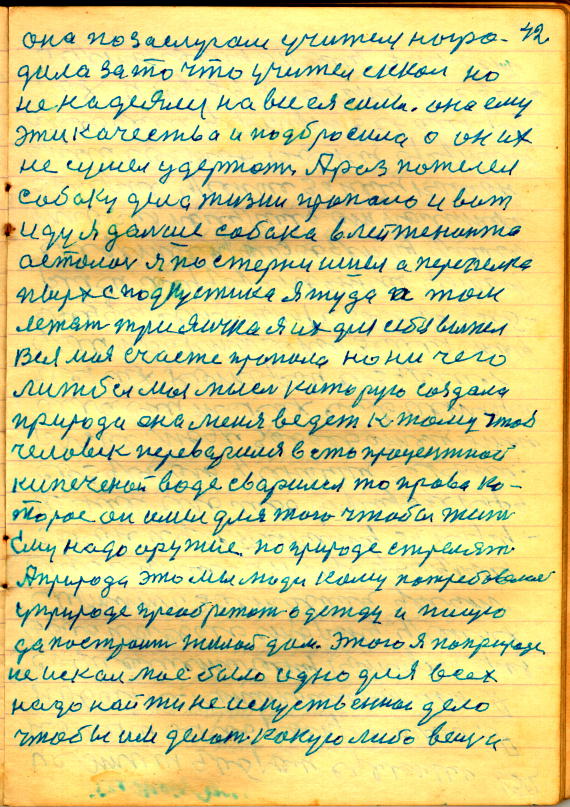 42
она по заслугам учителя нагро-
дила за то что учител искал но
не надеялся на все я силы. она ему
эти качества и подбросила а он их
не сумел удержать. А раз потелел
собаку дела жизни пропало и вот
иду я дальше собака в лейтенанта
астолоя я по стерни ишел а перепелка
пырх с под кустика я туда а там
лежат три яичка я их для себя выпел
Вся моя счасте пропала но ни чего
лиш бы моя мысел которую создала
природа она меня ведет к тому чтоб
человек переварился в сто процентной
кипеченой воде сварился то права ко-
торое он имел для того чтобы жит
Ему надо оружие по природе стрелят.
А природа это мы люди кому потребовалос
у природе преобретат одежду и пищу
да построит жилой дом. Этого я по природе
не искал мое было одно для всех
надо найти не искуственное дело
чтобы им делат какую либо вещ и